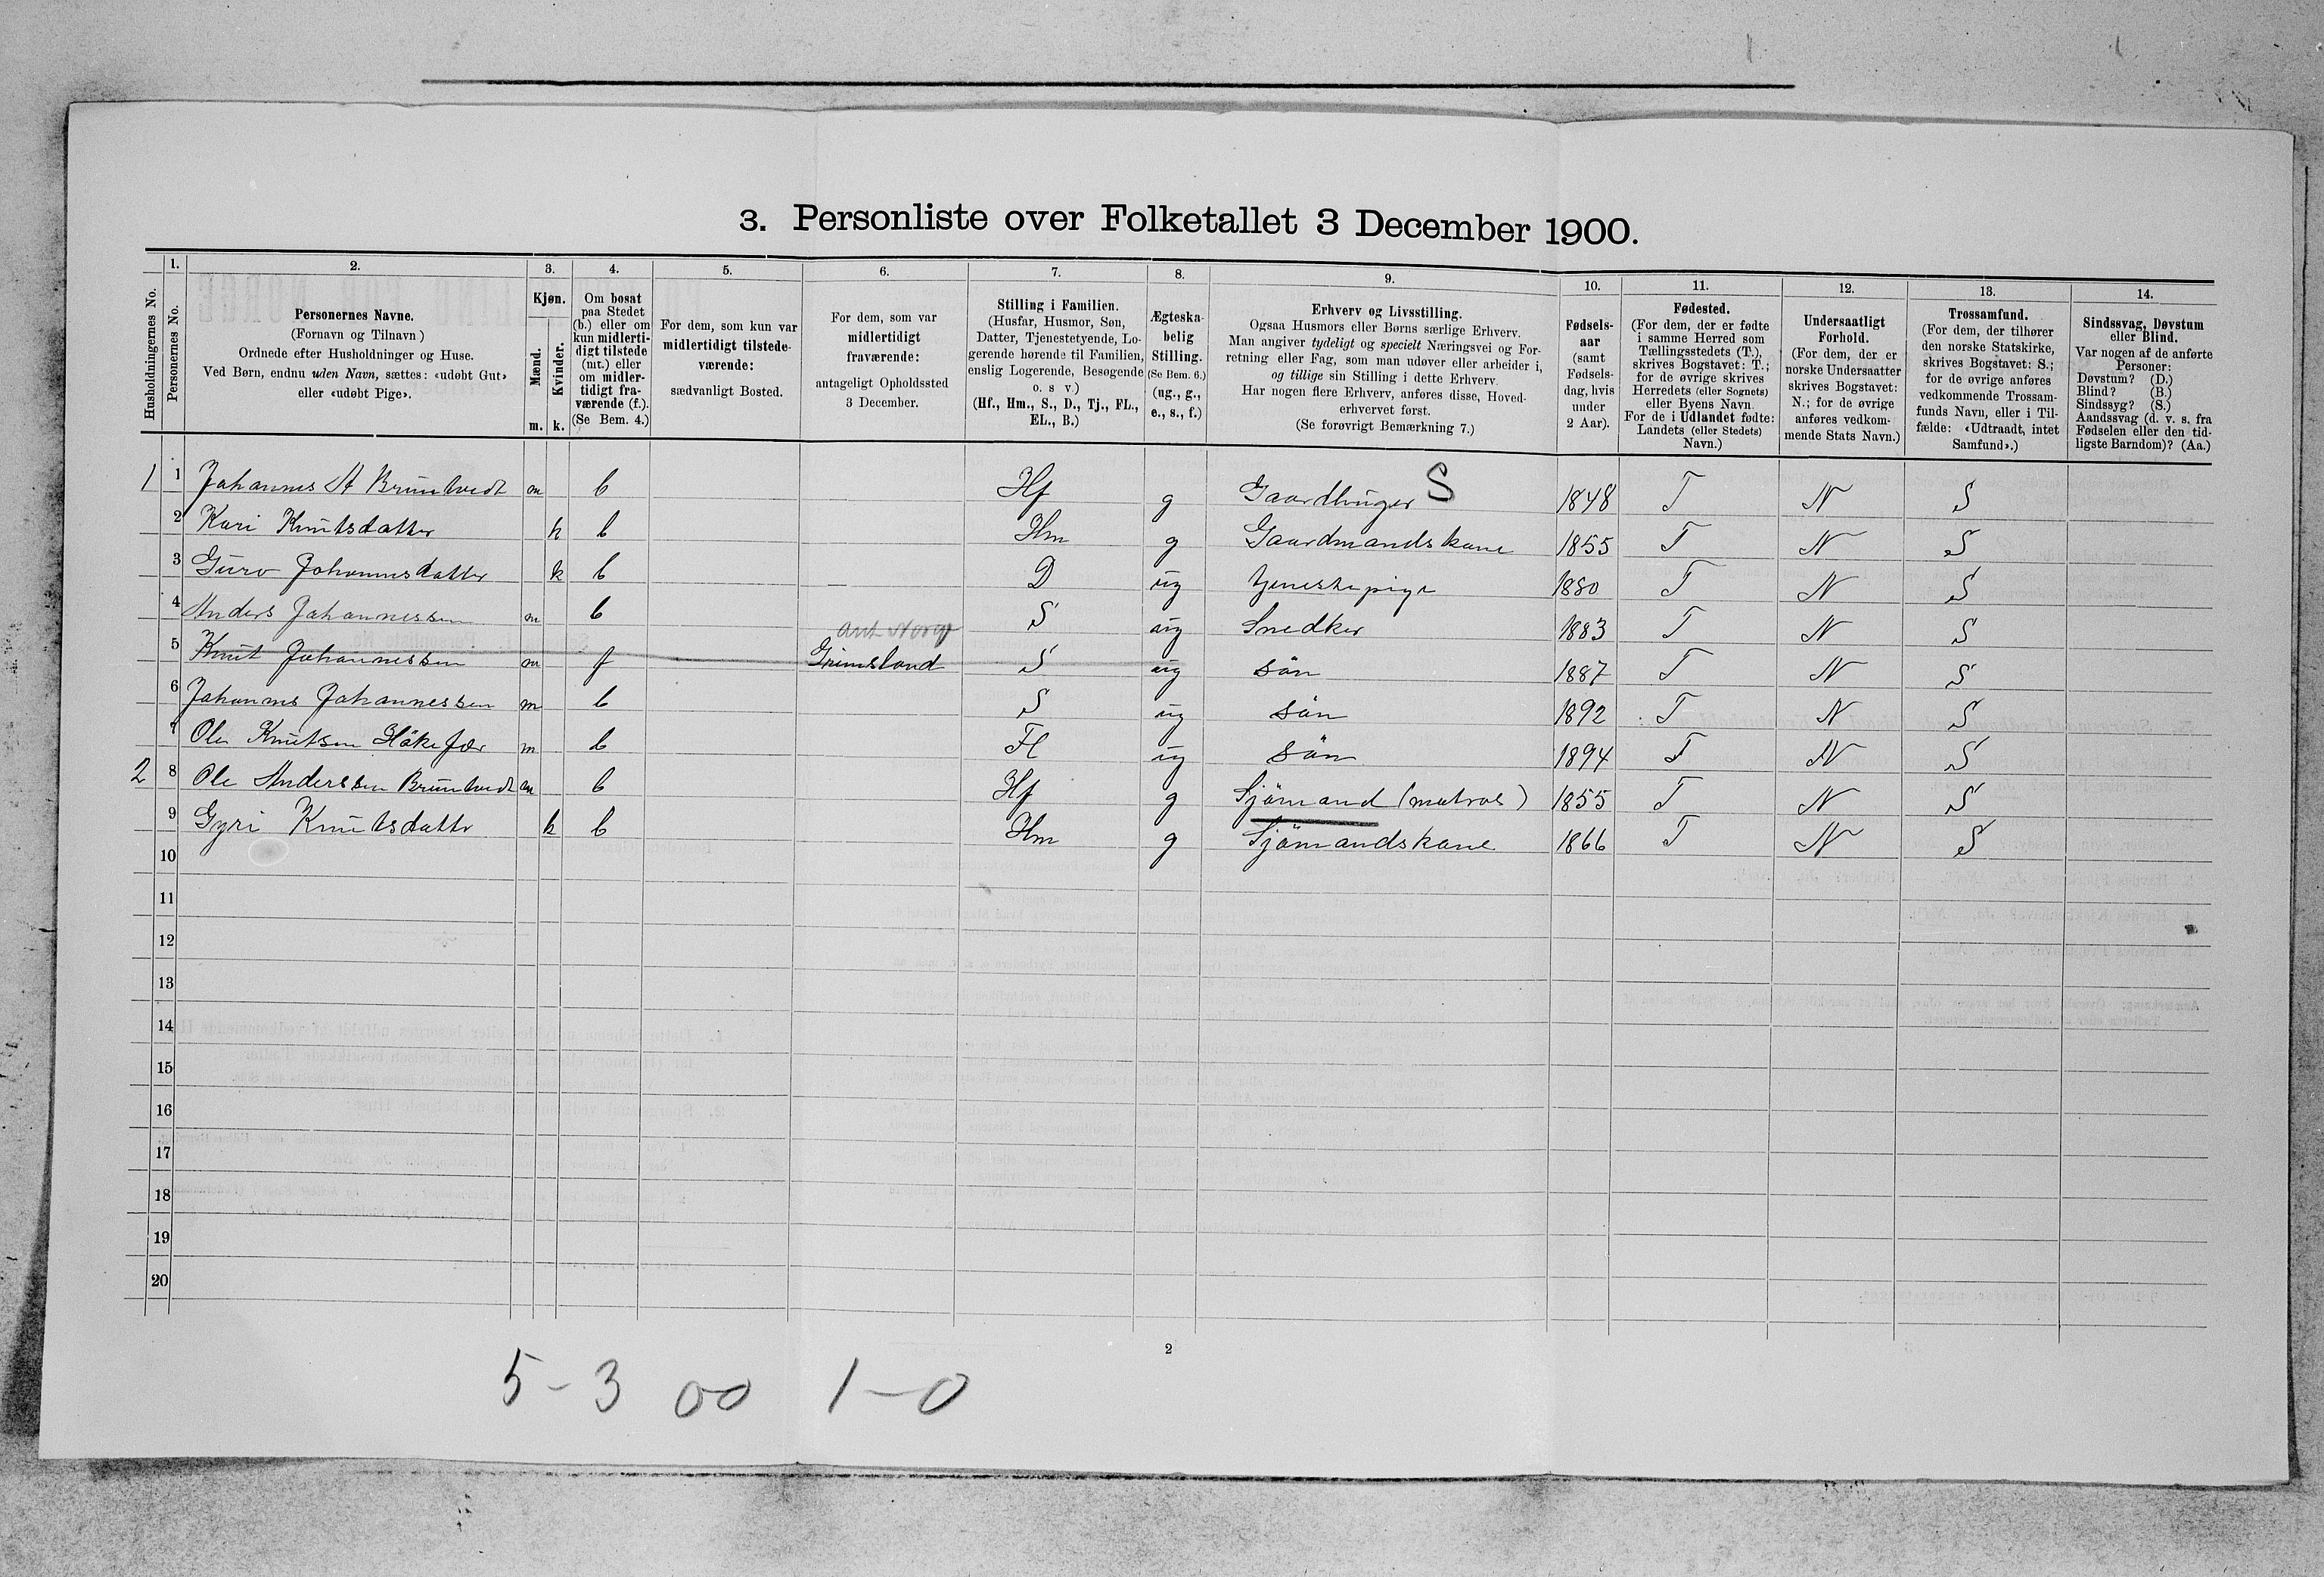 3. Personliste over Folketallet 3 December 1900.
Husholdningernes No.
1. Personernes No.
2. Personernes Navne.
(Fornavn og Tilnavn)
Ordnede efter Husholdninger og Huse.
Ved Børn, endnu uden Navn, sættes: «udøbt Gut»
eller «udøbt Pige».
3. Kjøn.
Mænd. m.
Kvinder. k.
4. Om bosat
paa Stedet
(b.) eller om
kun midlerti-
digt tilstede
(mt.) eller
om midler-
tidigt fra-
værende (f.).
(Se Bem. 4.)
5. For dem, som kun var
midlertidigt tilstede-
værende:
sædvanligt Bosted.
6. For dem, som var
midlertidigt
fraværende:
antageligt Opholdssted
3 December.
7. Stilling i Familien.
(Husfar, Husmor, Søn,
Datter, Tjenestetyende, Lo-
gerende hørende til Familien,
enslig Logerende, Besøgende
o. s v.)
(Hf., Hm., S., D., Tj., FL.,
EL., B.)
8. Ægteska-
belig
Stilling.
(Se Bem. 6.)
(ug., g.,
e., s., f.)
9. Erhverv og Livsstilling.
Ogsaa Husmors eller Børns særlige Erhverv.
Man angiver tydeligt og specielt Næringsvei og For-
retning eller Fag, som man udøver eller arbeider i,
og tillige sin Stilling i dette Erhverv.
Har nogen flere Erhverv, anføres disse, Hoved-
erhvervet først.
(Se forøvrigt Bemærkning 7.)
10. Fødsels-
aar
(samt
Fødsels-
dag, hvis
under
2 Aar).
11. Fødested.
(For dem, der er fødte
i samme Herred som
Tællingsstedets (T.),
skrives Bogstavet: T.;
for de øvrige skrives
Herredets (eller Sognets)
eller Byens Navn.
For de i Udlandet fødte:
Landets (eller Stedets)
Navn.)
12. Undersaatligt
Forhold.
(For dem, der er
norske Undersaatter
skrives Bogstavet:
N.; for de øvrige
anføres vedkom-
mende Stats Navn.)
13. Trossamfund.
(For dem, der tilhører
den norske Statskirke,
skrives Bogstavet: S.;
for de øvrige anføres
vedkommende Trossam-
funds Navn, eller i Til-
fælde: «Udtraadt, intet
Samfund».)
14. Sindssvag, Døvstum
eller Blind.
Var nogen af de anførte
Personer:
Døvstum? (D.)
Blind? (B.)
Sindssyg? (S.)
Aandssvag (d. v. s. fra
Fødselen eller den tid-
ligste Barndom)? (Aa.)
1 1 Johannes A Bruntvedt m b Hf g Gaardbruger S 1848 T N S
2 Kari Knutsdatter k b Hm g Gaardmandskone 1855 T N S
3 Guro Johannesdatter k b D ug tjenestepige 1880 T N S
4 Anders Johannessen m b S ug Snedker 1883 T N S
ant Norge
5 Knut Johannessen m f Grimsland S ug sön 1887 T N S
6 Johannes Johannessen m b S ug sön 1892 T N S
7 Ole Knutsen m b Fl ug sön 1894 T N S
2 8 Ole Anderssen Bruntvedt m b Hf g Sjömand (matros) 1855 T N S
9 Gyri Knutsdatter k b Hm g Sjömandskone 1866 T N S
10
11
12
13
14
15
16
17
18
19
20
2
5-3 00 1-0